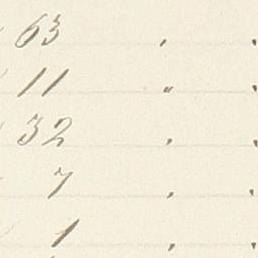 63 , ,
11 " ,
32 , ,
7 , ,
1 , ,